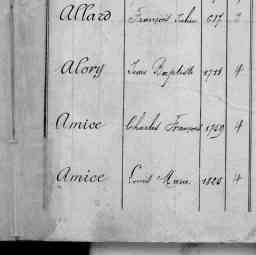 Allard François Julien 1717 2
Alory Jean Baptiste 1711 4
Amice Charles François 1759 4
Amice Louis Marie 1824 4